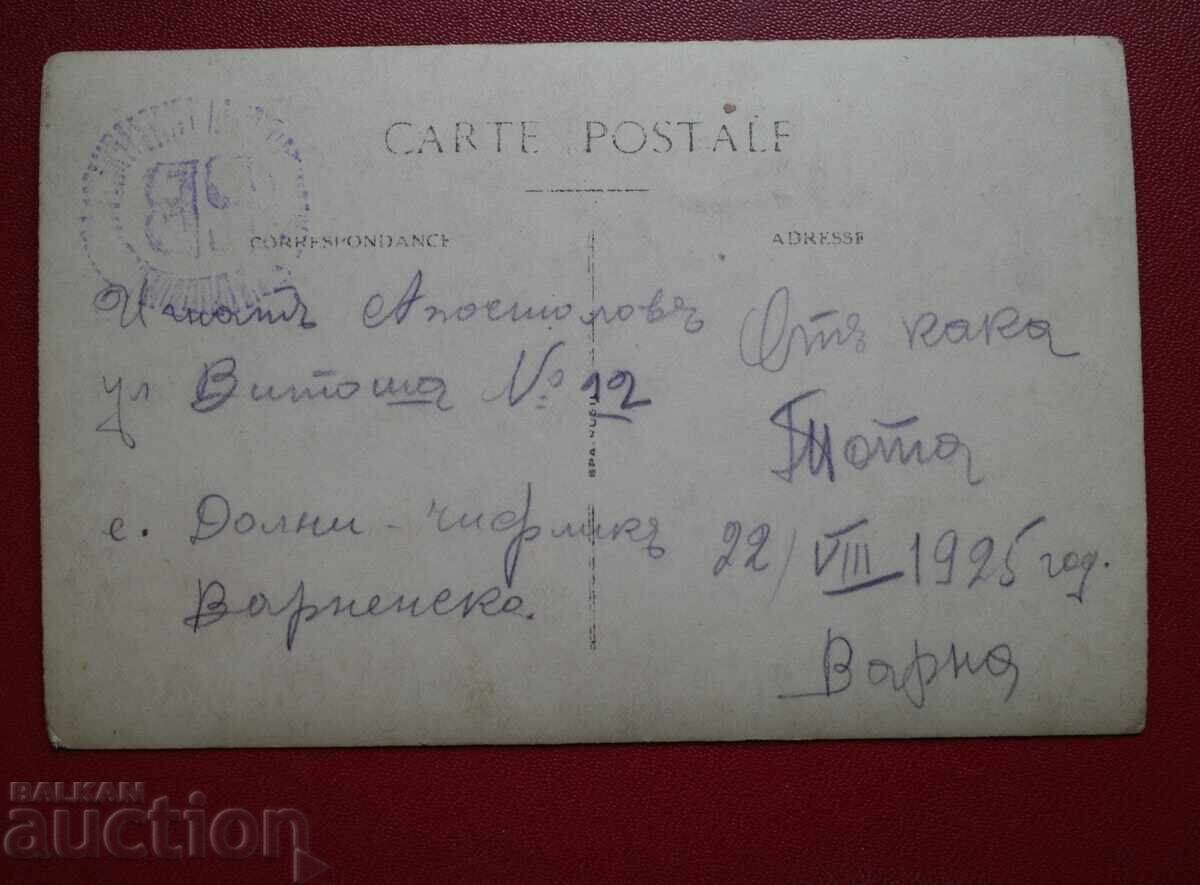 CARTE POSTALE
CORRESPONDANCE
ADRESSE
Апостоловъ
ул Витоша № 12
с. Долни-чифликъ
Варненско.
Отъ кака
Тота
22/VIII 1925 год.
Варна
BALKAN
auction